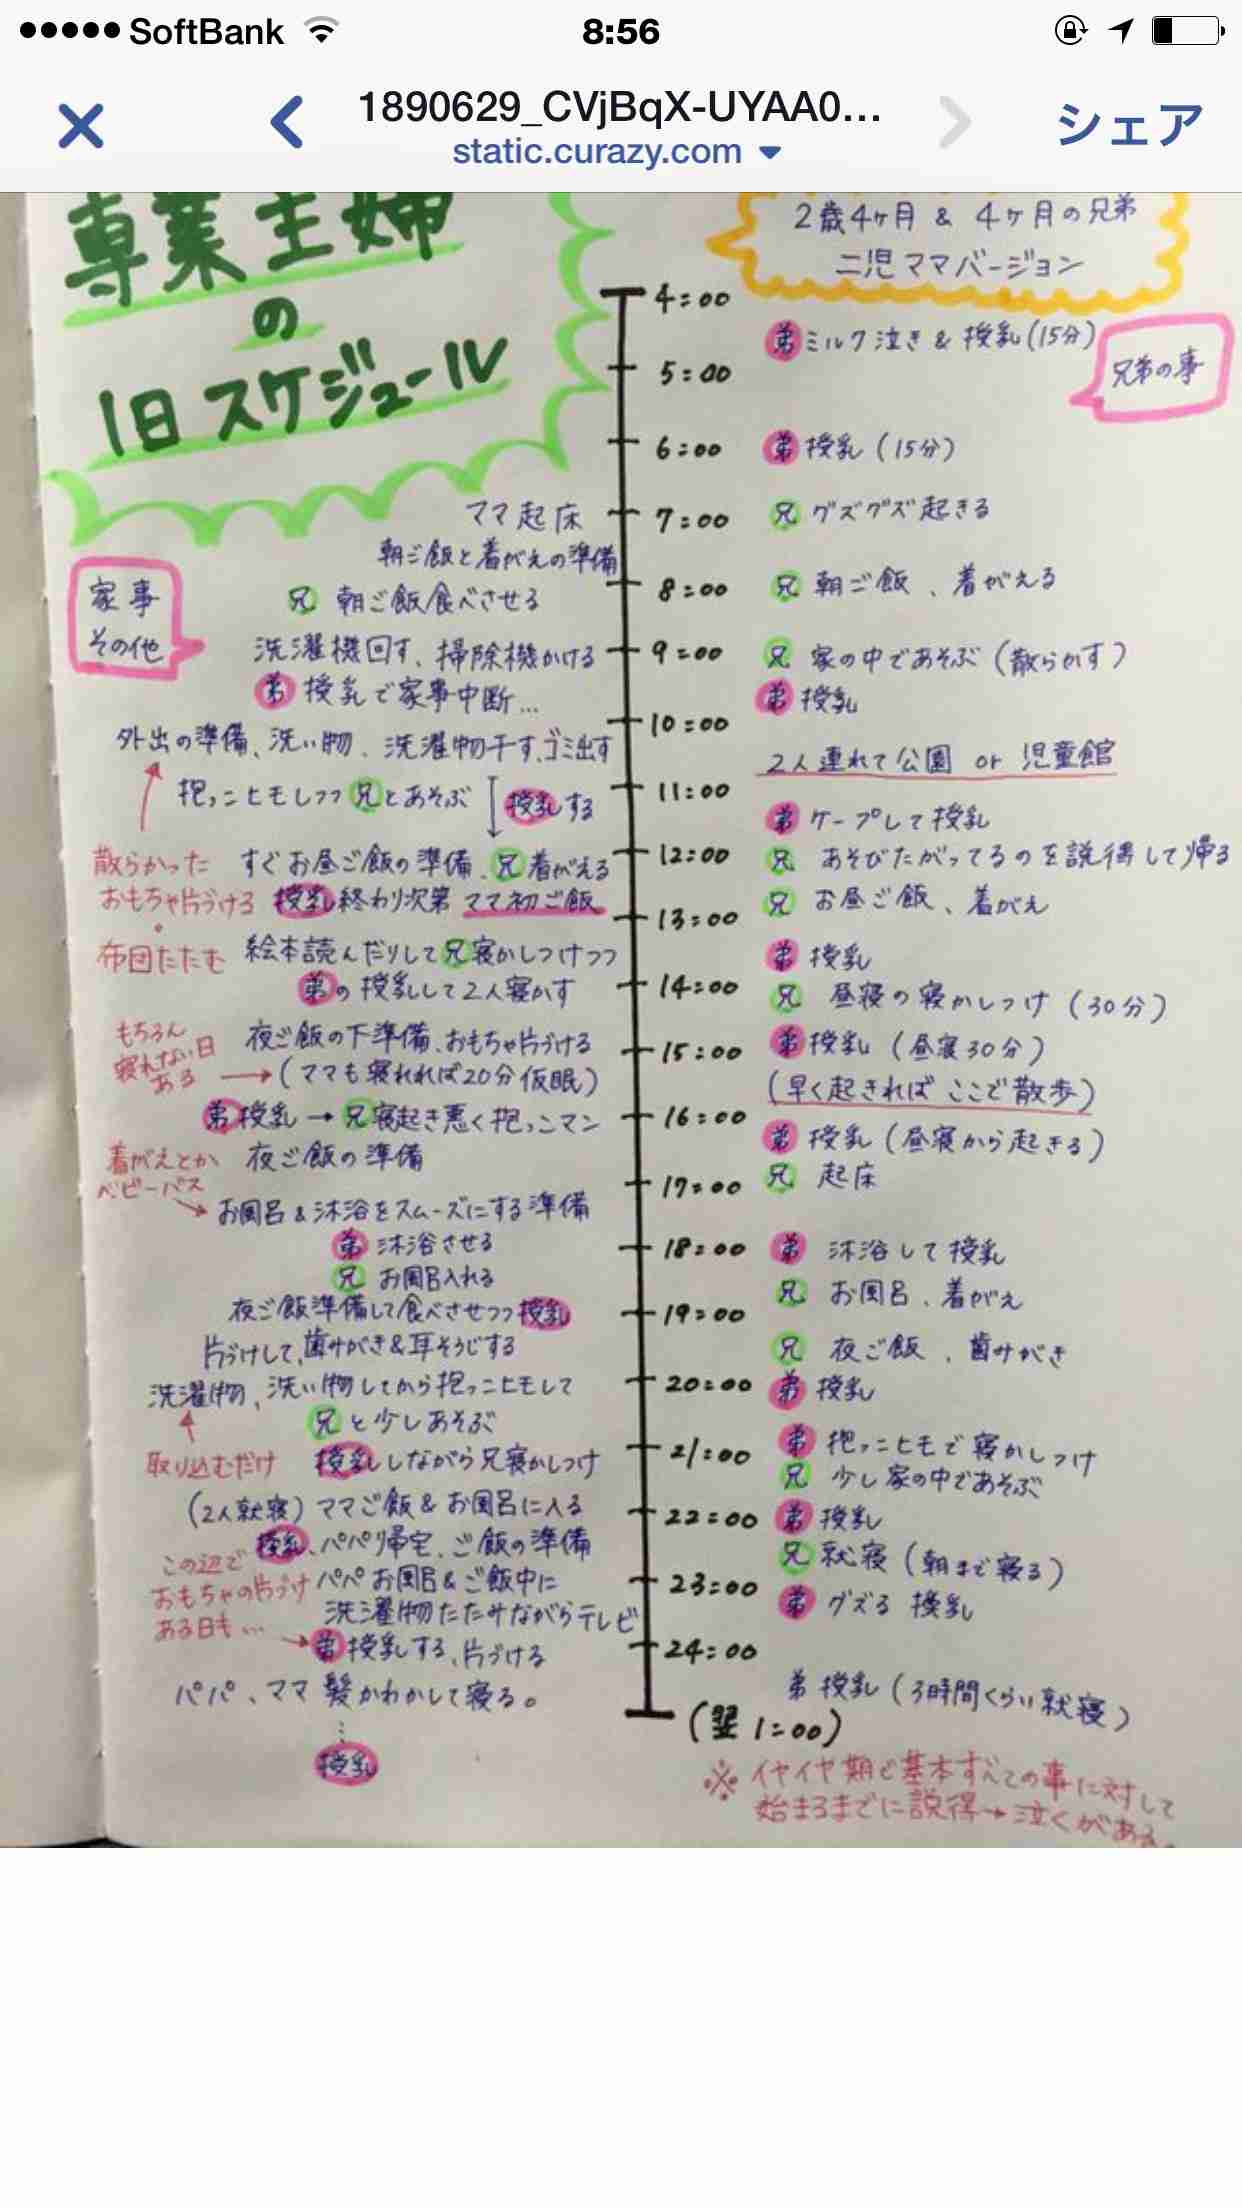 SoftBank 8:56
1890629_CVjBqX-UYAA0...
static.curazy.com
シェア
専業主婦
の
1日スケジュール
2歳4ヶ月 & 4ヶ月の兄弟
二児ママバージョン
兄弟の事
家事
その他
4:00
弟 ミルク泣き & 授乳(15分)
5:00
6:00
弟 授乳(15分)
ママ起床
7:00
兄 グズグズ起きる
朝ご飯と着がえの準備
8:00
兄 朝ご飯、着がえる
兄 朝ご飯食べさせる
洗濯機回す、掃除機かける
9:00
兄 家の中であそぶ(散らかす)
弟 授乳で家事中断...
弟 授乳
10:00
外出の準備、洗い物、洗濯物干す、ゴミ出す
2人連れて公園 or 児童館
抱っこヒモしつつ兄とあそぶ
授乳する
11:00
弟 ケープして授乳
散らかった
おもちゃ片づける
すぐお昼ご飯の準備、兄着がえる
12:00
兄 あそびたがってるのを説得して帰る
授乳終わり次第 ママ初ご飯
兄 お昼ご飯、着がえ
13:00
布団たたむ
絵本読んだりして兄寝かしつけつつ
弟 授乳
弟の授乳して2人寝かす
14:00
兄 昼寝の寝かしつけ(30分)
もちろん
寝れない日
ある
夜ご飯の下準備、おもちゃ片づける
弟 授乳(昼寝30分)
15:00
(ママも寝れれば20分仮眠)
(早く起きればここで散歩)
弟授乳→兄寝起き悪く抱っこマン
16:00
弟 授乳(昼寝から起きる)
着がえとか
ベビーバス
夜ご飯の準備
兄 起床
17:00
お風呂&沐浴をスムーズにする準備
弟 沐浴させる
18:00
弟 沐浴して授乳
兄 お風呂入れる
兄 お風呂、着がえ
夜ご飯準備して食べさせつつ授乳
19:00
片づけして、歯みがき&耳そうじする
兄 夜ご飯、歯みがき
洗濯物、洗い物してから抱っこヒモして
20:00
弟 授乳
兄と少しあそぶ
弟 抱っこヒモで寝かしつけ
取り込むだけ
授乳しながら兄寝かしつけ
21:00
兄 少し家の中であそぶ
(2人就寝) ママご飯&お風呂に入る
22:00
弟 授乳
授乳、パパ帰宅、ご飯の準備
兄 就寝(朝まで寝る)
この辺で
おもちゃの片づけ
ある日も...
パパお風呂&ご飯中に
23:00
洗濯物たたみながらテレビ
弟 グズる 授乳
弟 授乳する、片づける
24:00
パパ、ママ髪かわかして寝る。
弟 授乳(3時間くらい就寝)
(翌1:00)
授乳
※イヤイヤ期で基本すべての事に対して
始まるまでに説得→泣くがある。